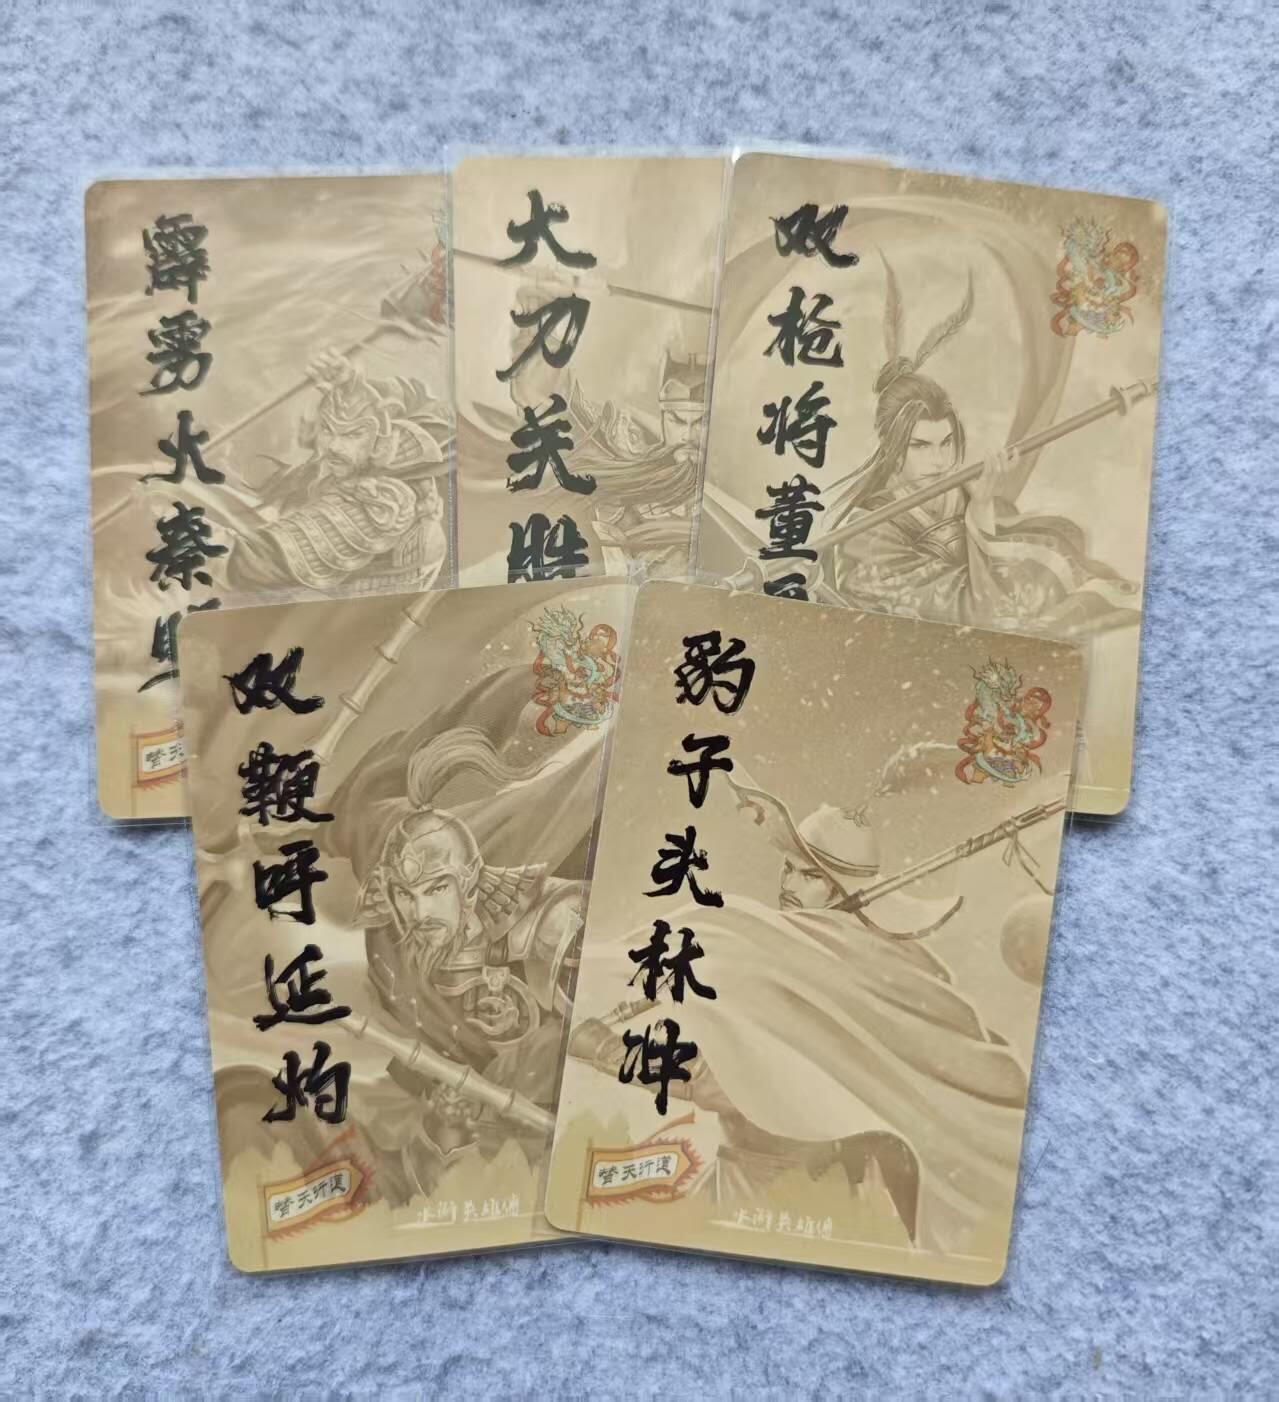 霹雳火秦明
大刀关胜
双枪将董平
双鞭呼延灼
豹子头林冲
替天
替天行道
替天行道
水浒英雄传
水浒英雄传